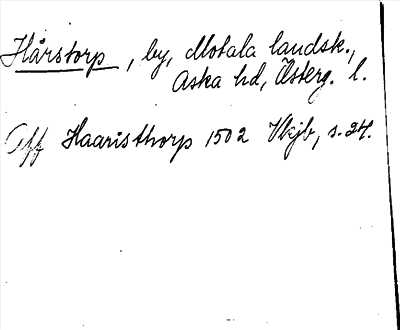 Hårstorp, by, Motala landsk.,
Aska hd, Österg. l.
Aff Haaristhorp 1502 Vkjb, s. 24.